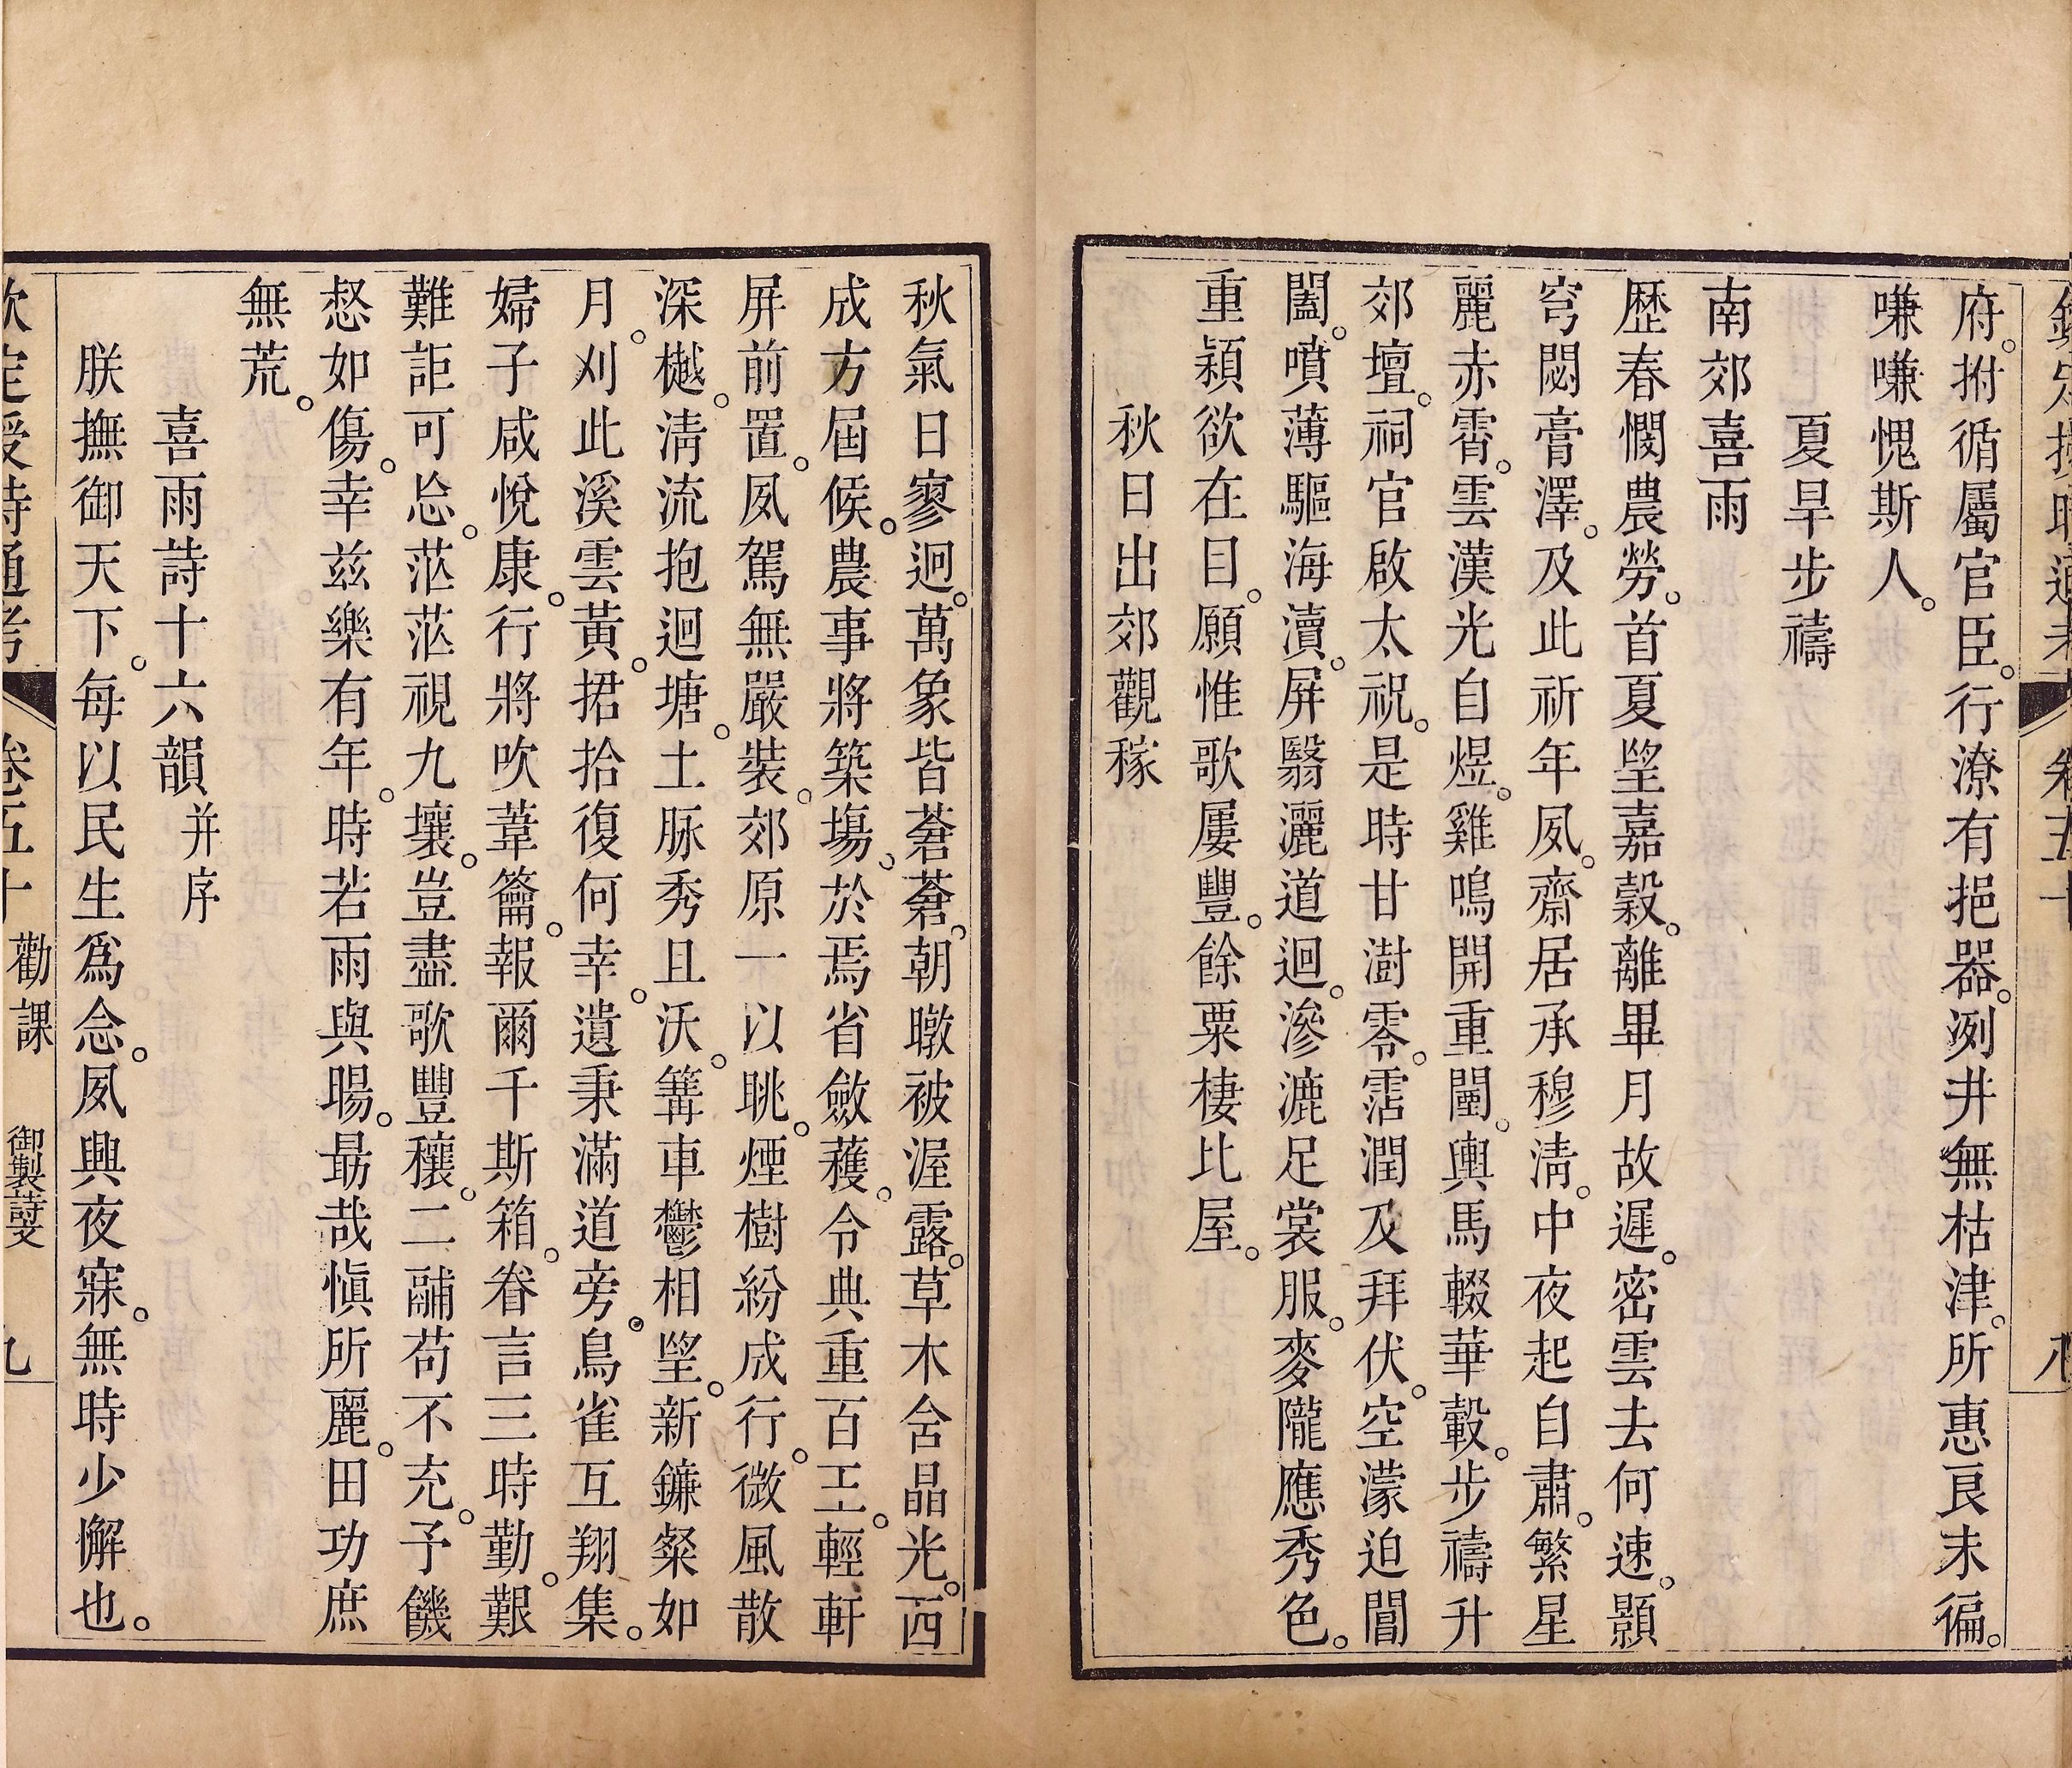 欽定授時通考 卷五十 八
府。拊循屬官臣。行潦有挹器。冽井無枯津。所惠良未徧。
嗛嗛愧斯人。
夏旱步禱
南郊喜雨
歷春憫農勞。首夏望嘉穀。離畢月故遲。密雲去何速。顥
穹閟膏澤。及此祈年夙。齋居承穆清。中夜起自肅。繁星
麗赤霄。雲漢光自煜。雞鳴開重闉。輿馬輟華轂。步禱升
郊壇。祠官啟太祝。是時甘澍零。霑潤及拜伏。空濛迫閶
闔。噴薄驅海瀆。屏翳灑道迴。滲漉足裳服。麥隴應秀色。
重穎欲在目。願惟歌屢豐。餘粟棲比屋。
秋日出郊觀稼
秋氣日寥迥。萬象皆蒼蒼。朝暾被渥露。草木含晶光。西
成方屆候。農事將築場。於焉省斂穫。令典重百工。輕軒
屏前置。夙駕無嚴裝。郊原一以眺。煙樹紛成行。微風散
深樾。清流抱迴塘。土脉秀且沃。篝車鬱相望。新鐮粲如
月。刈此溪雲黃。捃拾復何幸。遺秉滿道旁。鳥雀互翔集。
婦子咸悅康。行將吹葦籥。報爾千斯箱。眷言三時勤。艱
難詎可忘。茫茫視九壤。豈盡歌豐穰。二鬴苟不充。予饑
惄如傷。幸茲樂有年。時若雨與暘。最哉慎所麗。田功庶
無荒。
喜雨詩十六韻 并序
朕撫御天下。每以民生為念。夙興夜寐。無時少懈也。
欽定授時通考 卷五十 勸課 御製詩文 九